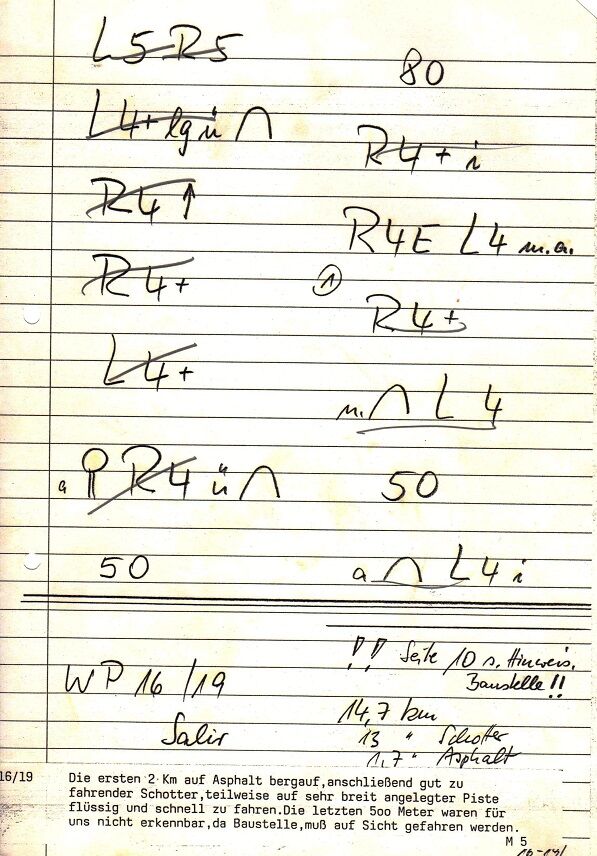 L5-R5
L4+ lg ü ∩
R4 ↑
R4+
L4+
a R4 ü ∩
50
80
R4+ i
R4E L4 m.a.
① R4+
m. ∩ L 4
50
a ∩ L4 i
WP 16/19
Salir
!! Seite 10 s. Hinweis.
Baustelle!!
14,7 km
13 " Schotter
1,7 " Asphalt
16/19
Die ersten 2 Km auf Asphalt bergauf,anschließend gut zu
fahrender Schotter,teilweise auf sehr breit angelegter Piste
flüssig und schnell zu fahren.Die letzten 5oo Meter waren für
uns nicht erkennbar,da Baustelle,muß auf Sicht gefahren werden.
M 5